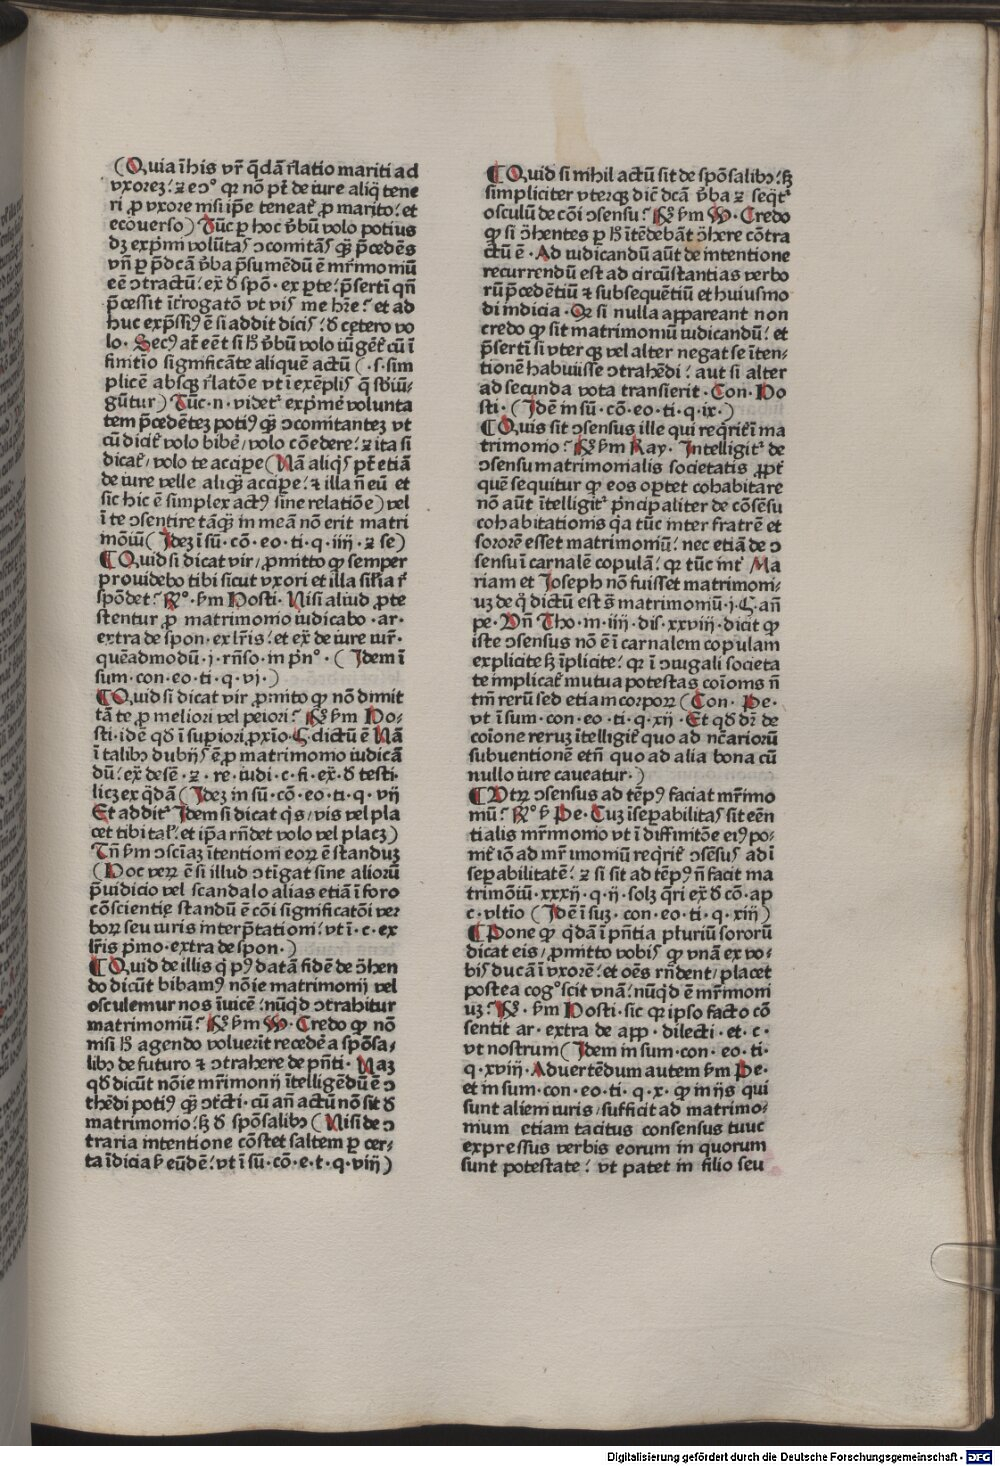 (Quia ī his vr̄ q̄dā r̄latio mariti ad
vxorez: ⁊ eↄ° qꝛ nō pt̄ de iure aliq̄ tene
ri ꝓ vxore nisi ip̄e teneat̄ ꝓ marito: et
ecouerso) Tūc ꝑ hoc v̄bū volo potius
dꝫ exp̄mi volūtaſ ↄcomitāſ qꝫ p̄cedēs
vn̄ ꝑ p̄dcā v̄ba p̄sumēdū ē mr̄moniū
eē ↄtractū: ex̄ d̄ spō· ex ꝑte: p̄serti qn̄
p̄cessit īt̄rogatō vt viſ me hr̄e: et ad
huc exp̄ssiꝰ ē si addit diciſ: d̄ cętero vo
lo· Secꝰ at̄ eēt si h̄ v̄bū volo iūgēt̄ cū ī
finitīo significāte aliquē actū (·s·sim
plicē absqꝫ r̄latōe vt ī exēpliſ q̄ sb̄iū⸗
gūtur) Tūc·n·videt̉ exp̄mē volunta
tem p̄cedētez potiꝰ qꝫ ↄcomitantez vt
cū dicit̄ volo bibē/volo cōedere: ⁊ ita si
dicat̄/volo te accipe (Nā aliqͥſ pt̄ etiā
de iure velle aliqꝫ accipe: ⁊ illa n̄ eū et
sic hic ē simplex actꝰ sine relatiōe) vel
ī te ↄsentire tāqꝫ in meā nō erit matri
mōiū (Idez ī sū·cō·eo·ti·q·iiij·⁊ se)
¶Quid si dicat vir/ꝓmitto ꝙ semper
prouidebo tibi sicut vxori et illa sil̄ia r̄
spōdet: ℟°·ẜm Hosti·Nisi aliud ꝓte
stentur ꝓ matrimonio iudicabo·ar·
extra de spon·ex lr̄is: et ex̄ de iure iur̄·
quēadmodū·j·rn̄so·in p̄n°·(Idem ī
sum·con·eo·ti·q·vj·)
¶Quid si dicat vir ꝓmito ꝙ nō dimit
tā te ꝓ meliori vel peiori: ℟ ẜm Ho⸗
sti·idē qd̄ ī supiori ꝓxīo·ς·dictū ē Nā
ī talibꝫ dubijſ ē ꝓ matrimonio iudicā
dū: ex̄ de sē·⁊·re·iudi·c·fi·ex̄·d̄ testi·
licz ex q̄dā (Idez in sū·cō·eo·ti·q·vij
Et addit̉ Idem si dicat qͥs/vis vel pla
cet tibi tal̄: et ip̄a rn̄det volo vel placz)
Tn̄ ẜm ↄsciāꝫ ītentioni eoꝝ ē standuꝫ
(Hoc veꝝ ē si illud ↄtīgat sine alioꝛū
p̄uidicio vel scandalo alias etiā ī foro
cōscientię standū ē cōi significatōi ver
boꝝ seu iuris interp̄tationi: vt ī·c·ex
lr̄is p̄mo·extra de spon·)
¶Quid de illis q̄ pꝰ datā fidē de ↄ̄hen
do dicūt bibamꝰ nōie matrimonij vel
osculemur nos īuicē: nūqͥd ↄtrahitur
matrimoniū: ℟ ẜm W·Credo ꝙ nō
nisi h̄ agendo voluerīt recedē a spōsa⸗
libꝫ de futuro ⁊ ↄtrahere de pn̄ti·Nāꝫ
qd̄ dicūt nōie mr̄monij ītelligēdū ē ↄ
thēdi potiꝰ qꝫ ↄt̄cti·cū an̄ actū nō sit d̄
matrimonio: ẜ d̄ spōsalibꝫ (Nisi de ↄ
traria intentione cōstet saltem ꝑ cer⸗
ta īdicia ẜ eūdē: vt ī sū·cō·e·t·q·viij)
¶Quid si nihil actū sit de spōsalibꝫ: ẜ
simpliciter vterqꝫ dic̄ dcā v̄ba ⁊ seqͥt̉
osculū de cōi ↄsensu: ℟ ẜm W·Credo
ꝙ si ↄ̄hentes ꝑ h̄ ītēdebāt ↄ̄here cōtra
ctū ē·Ad iudicandū aūt de intentione
recurrendū est ad circūstantias verbo
rū p̄cedētiū ⁊ subsequētiū et huiusmo
di indicia·Qꝛ si nulla appareant non
credo ꝙ sit matrimoniū iudicandū: et
p̄serti si vterqꝫ vel alter negat se īten⸗
tionē habuisse ↄtrahēdi: aut si alter
ad secunda vota transierit·Con·Ho
sti·(Idē in sū·cō·eo·ti·q·ix·)
¶Quis sit ↄsensus ille qui reqͥrit̄ ī ma
trimonio: ℟ ẜm Ray·Intelligit̉ de
ↄsensu matrimonialis societatis ꝓpt̄
quē sequitur ꝙ eos oꝑtet cohabitare
nō aūt ītelligit̉ pͥncipaliter de cōsēsu
cohabitationis qͥa tūc inter fratrē et
sororē esset matrimoniū: nec etiā de ↄ
sensu ī carnalē copulā: qꝛ tūc int̄ Ma
riam et Ioseph nō fuisset matrimoni⸗
uꝫ de qͦ dictū est s̄ matrimoniū·j·ς·an̄
pe·Dn̄ Tho·in·iiij·dis·xxviij·dicit ꝙ
iste ↄsensus nō ē ī carnalem copulam
explicite ẜ īplicite: qꝛ ī ↄiugali societa
te implicat̄ mutua potestas coīonis n̄
tm̄ rerū sed etiam corpoꝝ (Con·Pe·
vt ī sum·con·eo·ti·q·xij·Et qd̄ dr̄ de
coīone reruꝫ ītelligit̄ quo ad nc̄arioꝛū
subuentionē etn̄ quo ad alia bona cū
nullo iure caueatur·)
¶Vtꝝ ↄsensus ad tēpꝰ faciat mr̄imo
niū: ℟° ẜ Pe·Cuꝫ īseꝑabilitaſ sit eēn
tialis mr̄imonio vt ī diffinitōe eiꝰ po⸗
nit̄ iō ad mr̄imoniū reqͥrit̄ ↄsēsuſ ad ī
seꝑabilitatē: ⁊ si sit ad tēpꝰ n̄ facit ma
trimōiū·xxxij·q·ij·solꝫ qͥri ex̄ d̄ cō·ap
c·vltīo (Idē ī suꝫ·con·eo·ti·q·xiij)
¶Pone ꝙ qͥdā ī pn̄tia pluriū sororū
dicat eis/ꝓmitto vobiſ ꝙ vnā ex vo⸗
biſ ducā ī vxorē: et oēs rn̄dent/placet
postea cog°scit vnā: nūqͥd ē mr̄imoni
uꝫ: ℟·ẜm Hosti·sic qꝛ ipso facto cō
sentit ar·extra de app·dilecti·et·c·
vt nostrum (Idem in sum·con·eo·ti·
q·xviij·Aduertēdum autem ẜm Pe·
et in sum·con·eo·ti·q·x·ꝙ in ijs qui
sunt alieni iuris/sufficit ad matrimo⸗
nium etiam tacitus consensus tuuc
expressus verbis eorum in quorum
sunt potestate: vt patet in filio seu
Digitalisierung gefördert durch die Deutsche Forschungsgemeinschaft · DFG